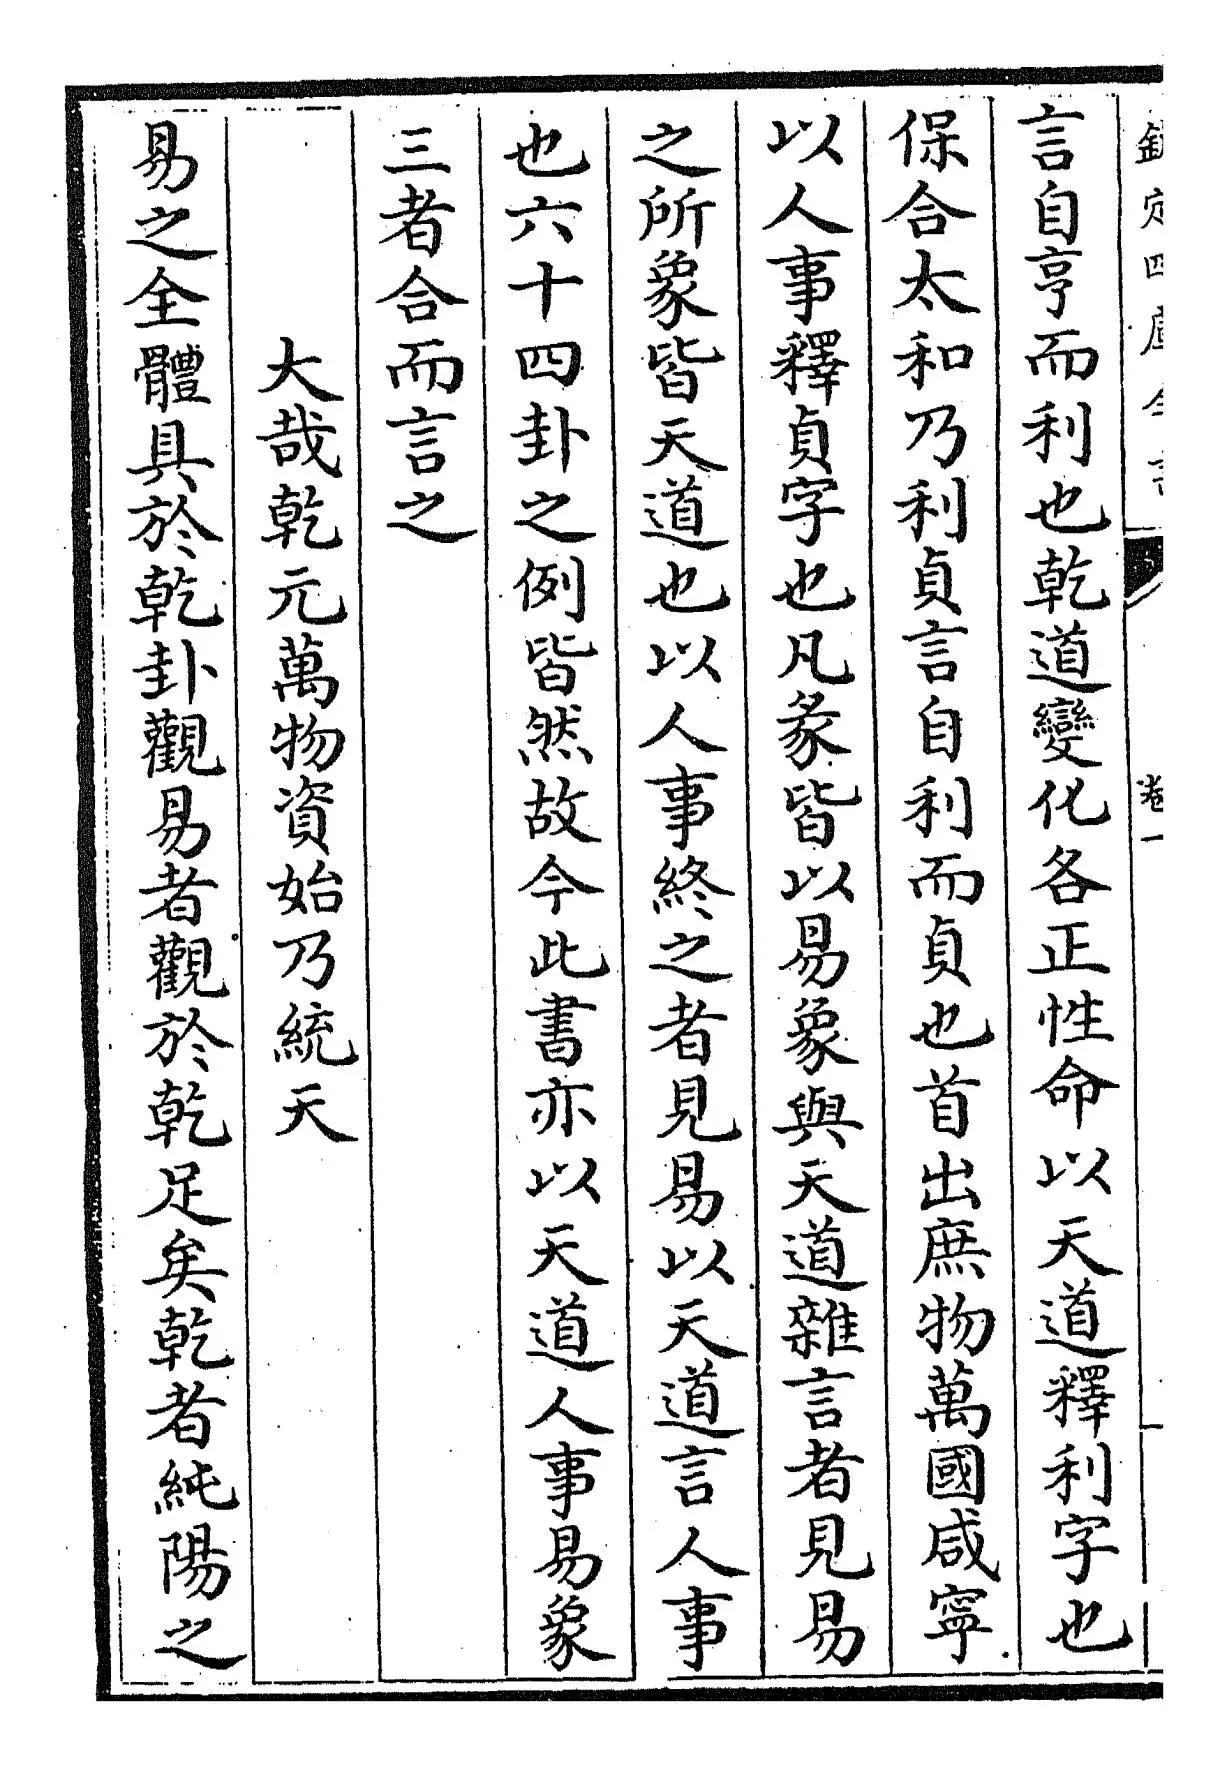 欽定四庫全書
卷一
言自亨而利也乾道變化各正性命以天道釋利字也
保合太和乃利貞言自利而貞也首出庶物萬國咸寧
以人事釋貞字也凡彖皆以易象與天道雜言者見易
之所象皆天道也以人事終之者見易以天道言人事
也六十四卦之例皆然故今此書亦以天道人事易象
三者合而言之
大哉乾元萬物資始乃統天
易之全體具於乾卦觀易者觀於乾足矣乾者純陽之